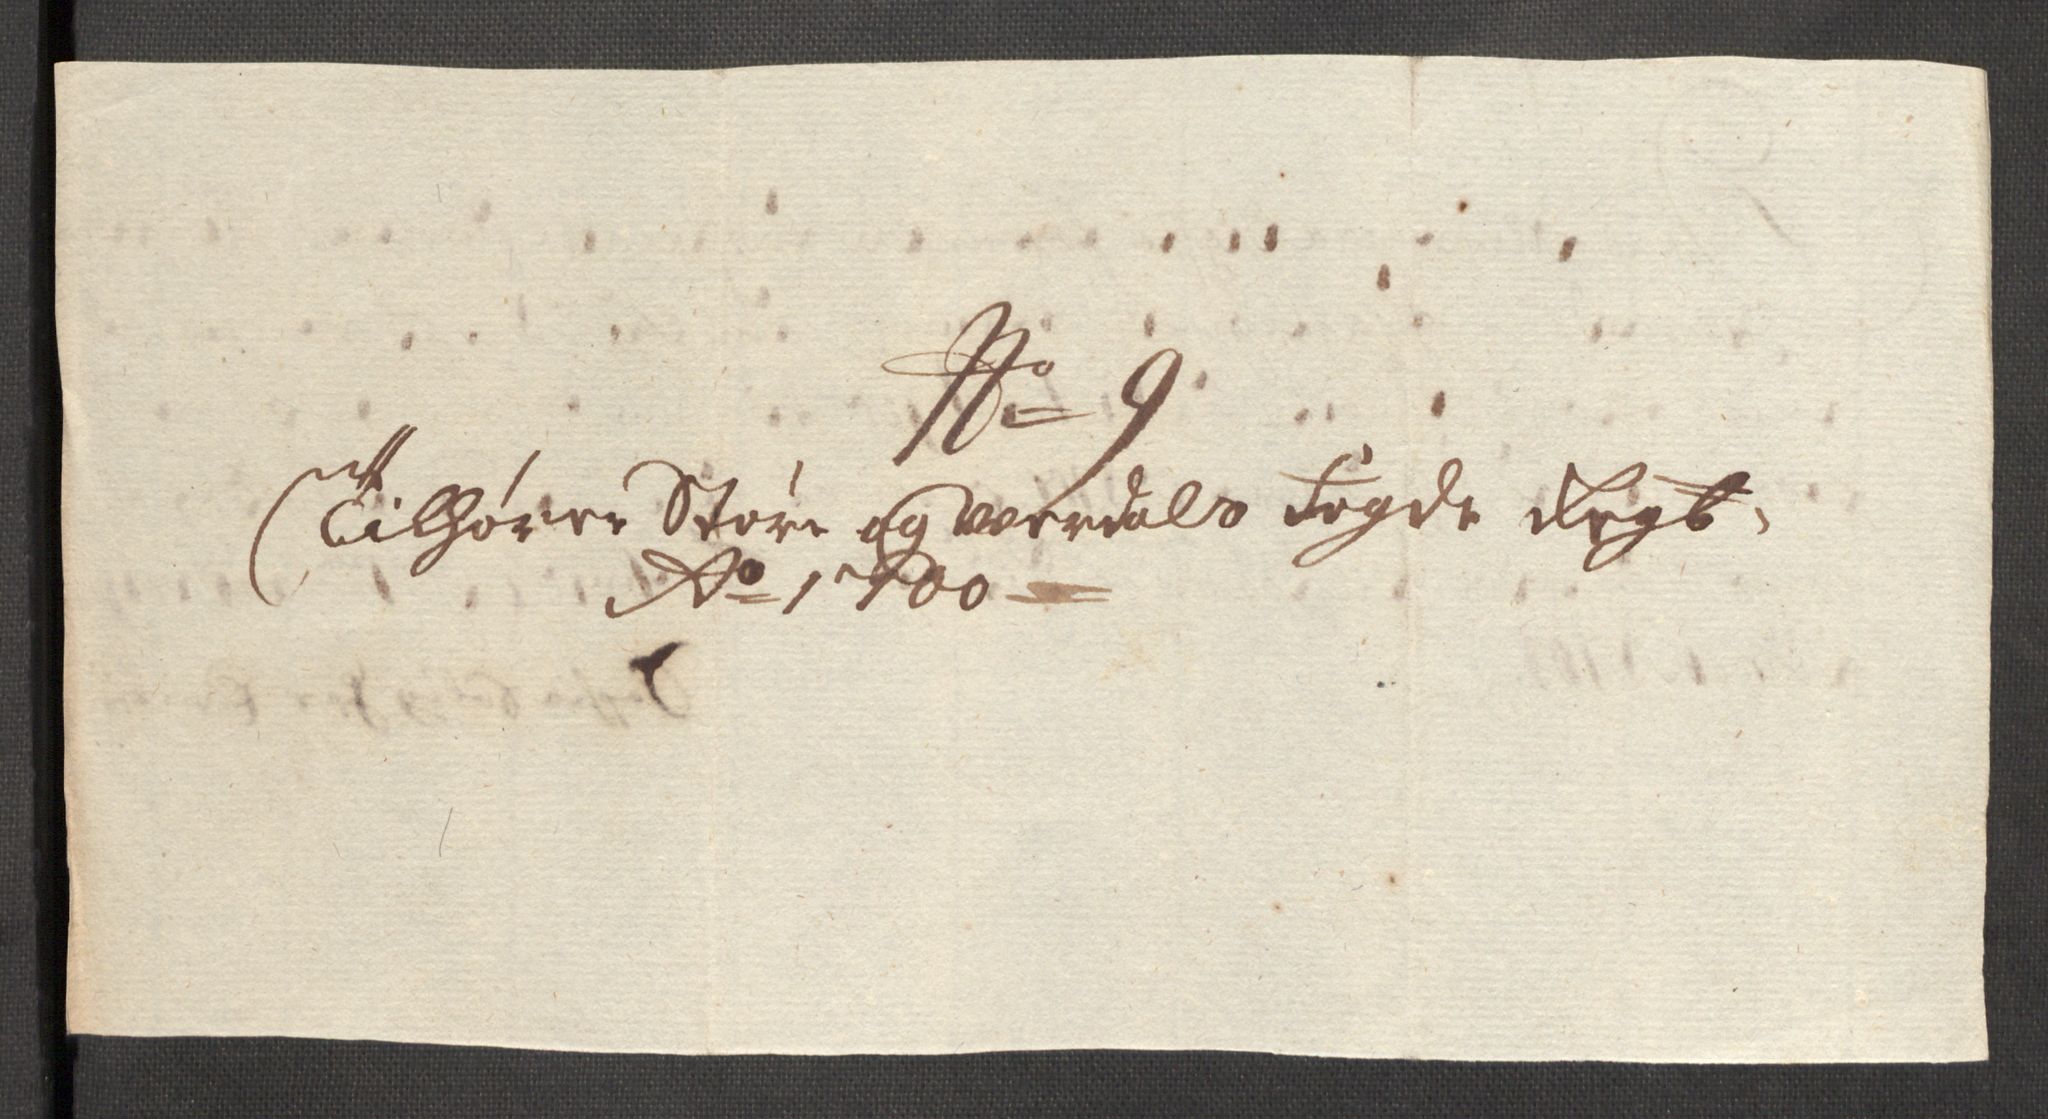 No 9
Tilhører Stør og Werdals Fogde Regb.
Ao 1700